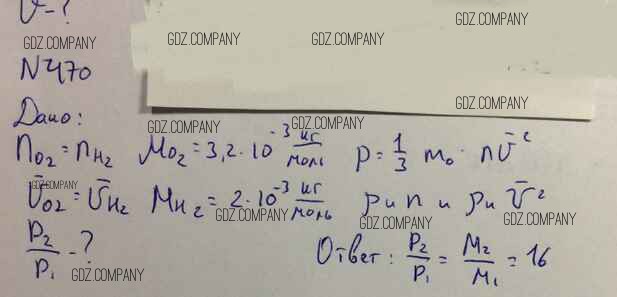 v̄-?
GDZ.COMPANY GDZ.COMPANY GDZ.COMPANY GDZ.COMPANY
N470
GDZ.COMPANY
Дано: GDZ.COMPANY GDZ.COMPANY
n_O₂ = n_H₂ M_O₂ = 3,2·10⁻³ кг/моль p = 1/3 m₀·nv̄²
GDZ.COMPANY
v̄_O₂ = v̄_H₂ M_H₂ = 2·10⁻³ кг/моль p и n и p и v̄²
GDZ.COMPANY GDZ.COMPANY
P₂/P₁ - ? Ответ: P₂/P₁ = M₂/M₁ = 16
GDZ.COMPANY GDZ.COMPANY